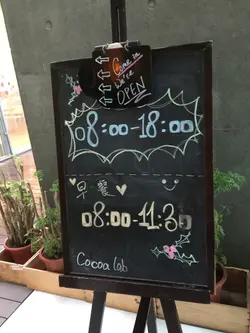 Come in
we're
OPEN
08:00-18:00
早餐
08:00-11:30
Cocoa Lab